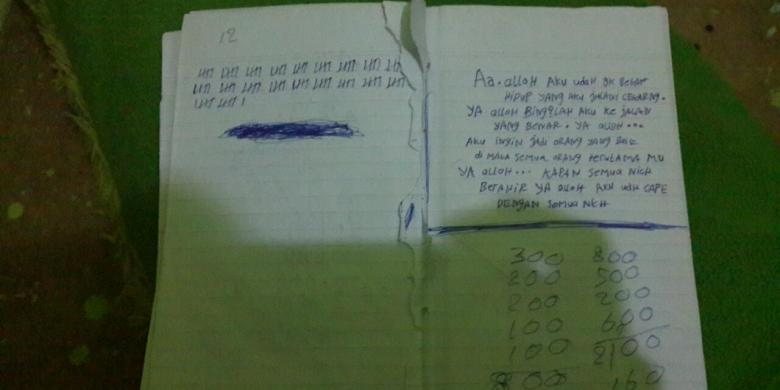 12
Aa. alloH AKU udaH GK BeTAH
HIDUP YANG AKU JALANI
YA alloH BINGBLAH AKU KE JALAN
YANG BENAR. YA alloH...
AKU INGIN JADI ORANG YANG BAIK
di MATA SEMUA ORANG MU
YA alloH... KAPAN SEMUA NICH
BERAHIR YA alloH AKU udH CAPE
DENGAN SEMUA NCH
300 800
200 500
200 200
100 600
100 2100
800 160